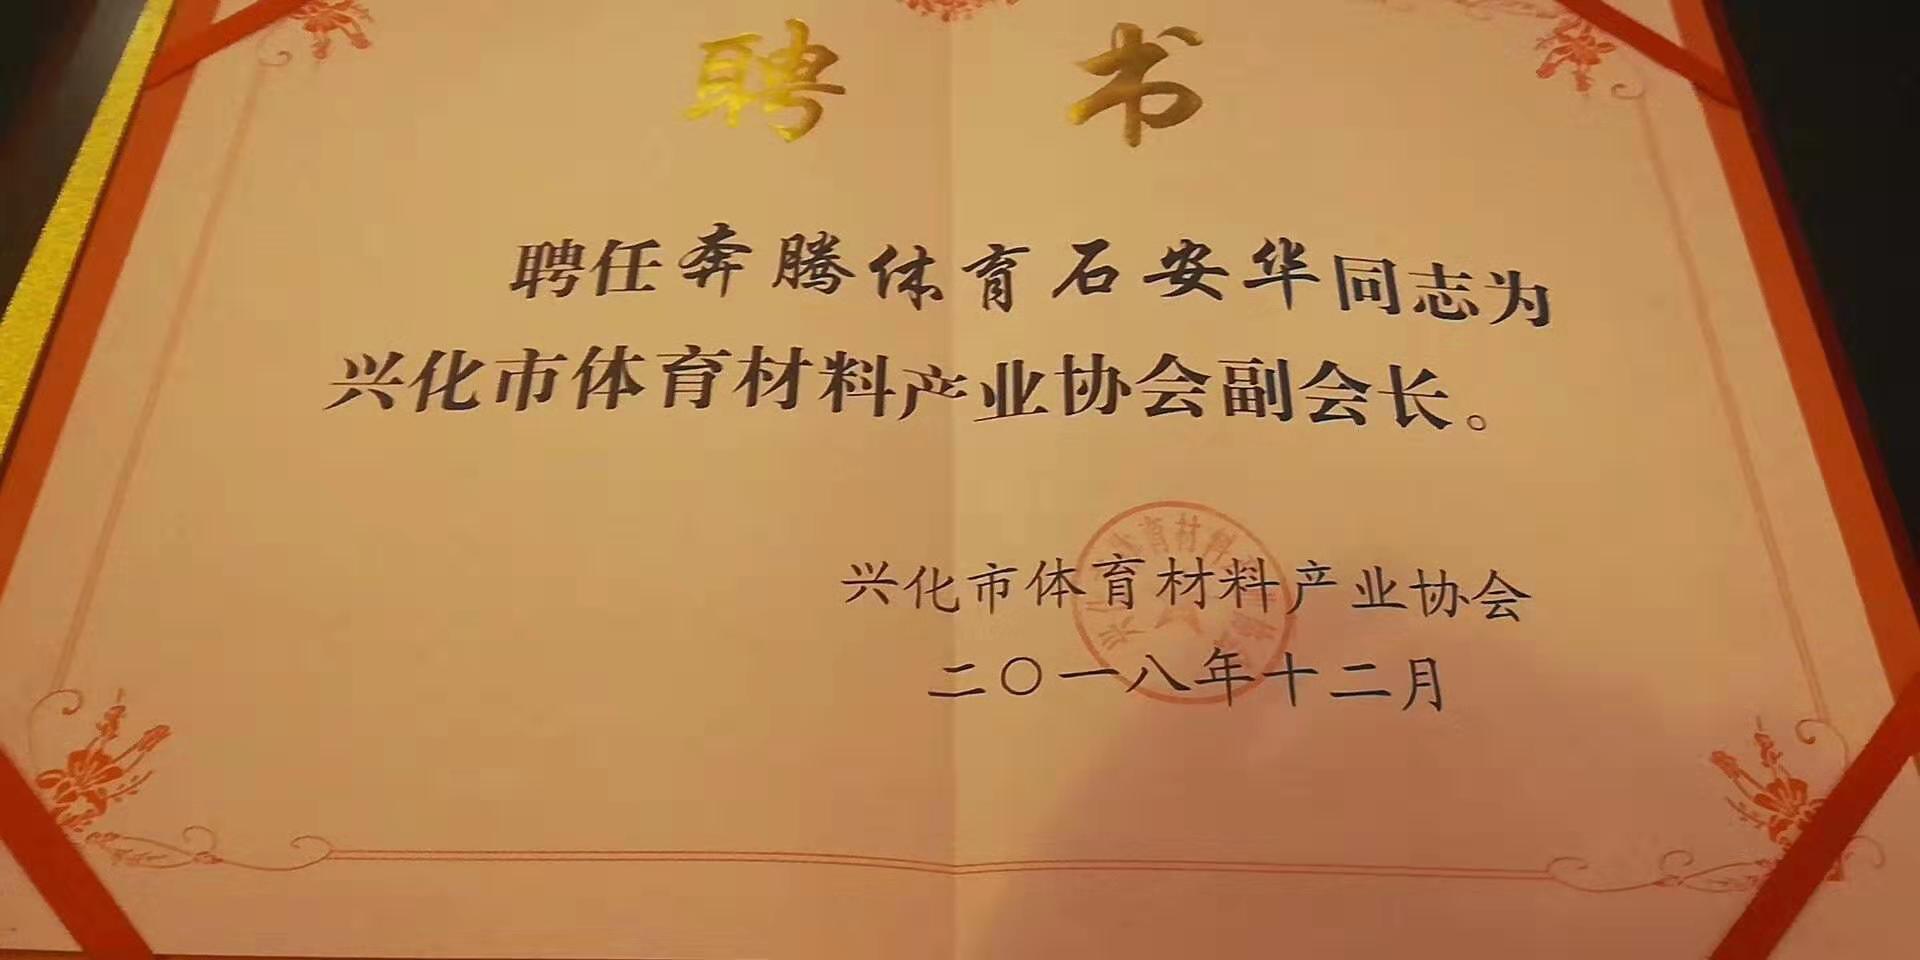 聘书
聘任奔腾体育石安华同志为
兴化市体育材料产业协会副会长。
兴化市体育材料产业协会
二〇一八年十二月
体育材料